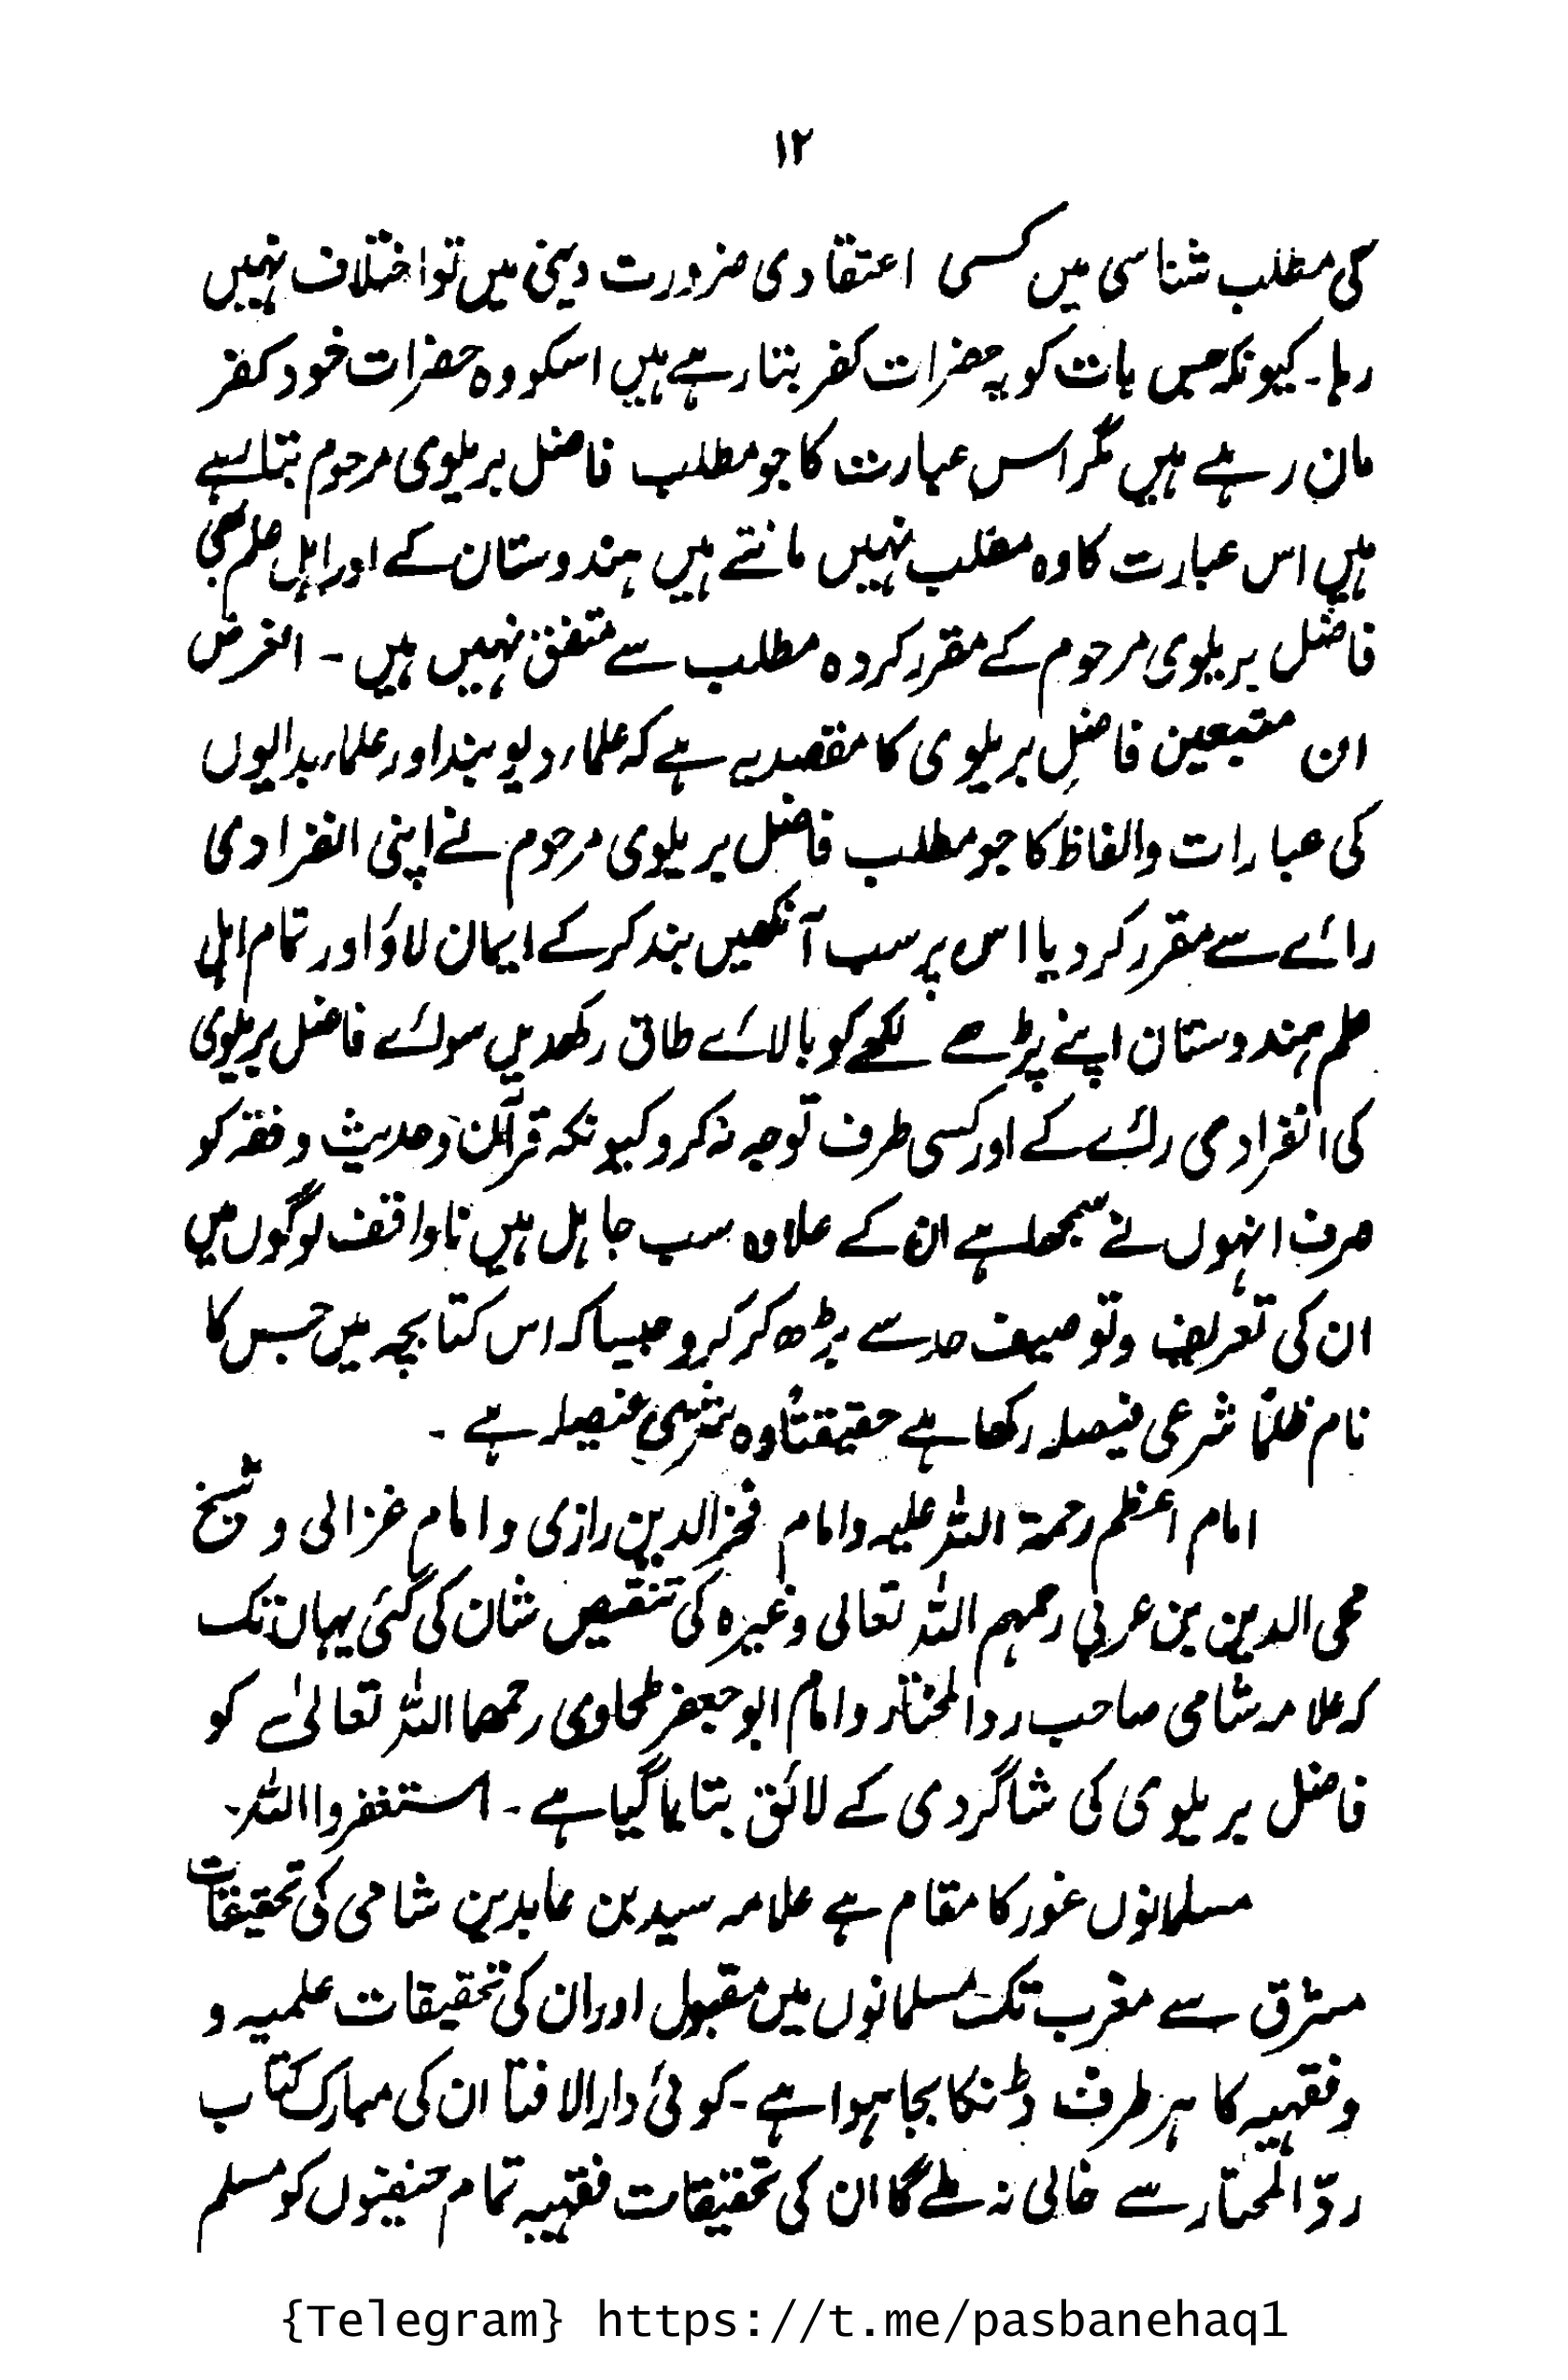 ۱۲
کی مطلب شناسی میں کسی اعتقادی ضرورت دینی میں تو اختلاف نہیں
رہا۔ کیونکہ جس بات کو یہ حضرات کفر بتا رہے ہیں اسکو وہ حضرات خود کفر
مان رہے ہیں مگر اس عبارت کا جو مطلب فاضل بریلوی مرحوم بتا رہے
ہیں اس عبارت کا وہ مطلب نہیں مانتے ہیں ہندوستان کے اور اہل علم بھی
فاضل بریلوی مرحوم کے مقرر کردہ مطلب سے متفق نہیں ہیں ۔ الغرض
ان متبعین فاضلِ بریلوی کا مقصد یہ ہے کہ علماء دیوبند اور علماء بدایوں
کی عبارات والفاظ کا جو مطلب فاضل بریلوی مرحوم نے اپنی انفرادی
رائے سے مقرر کر دیا اس پر سب آنکھیں بند کرکے ایمان لاؤ اور تمام اہل
علم ہندوستان اپنے پڑھے لکھے کو بالائے طاق رکھدیں سوائے فاضل بریلوی
کی انفرادی رائے کے اور کسی طرف توجہ نہ کرو کیونکہ قرآن و حدیث و فقہ کو
صرف انہوں نے سمجھا ہے ان کے علاوہ سب جاہل ہیں ناواقف لوگوں میں
ان کی تعریف وتوصیف حد سے بڑھ کر کرو جیسا کہ اس کتابچہ میں جس کا
نام ظلمًا شرعی فیصلہ رکھا ہے حقیقتًا وہ غیصلہ ہے ۔
امام اعظم رحمۃ اللہ علیہ وامام فخر الدین رازی و امام غزالی و شیخ
محی الدین بن عربی رحمہم اللہ تعالی وغیرہ کی تنقیص شان کی گئی یہاں تک
کہ علامہ شامی صاحب رد المختار وامام ابو جعفر طحاوی رحمھا اللہ تعالیٰ کو
فاضل بریلوی کی شاگردی کے لائق بتایا گیا ہے ۔ استغفروا اللہ۔
مسلمانوں غور کا مقام ہے علامہ سید بن عابدین شامی کی تحقیقات
مشرق سے مغرب تک مسلمانوں میں مقبول اور ان کی تحقیقات علمیہ و
و فقہیہ کا ہر طرف ڈنکا بجا ہوا ہے ۔ کوئی دار الافتا ان کی مبارک کتاب
ردّ المحتار سے خالی نہ ملے گا ان کی تحقیقات فقہیہ تمام حنفیوں کو مسلم
{Telegram} https://t.me/pasbanehaq1